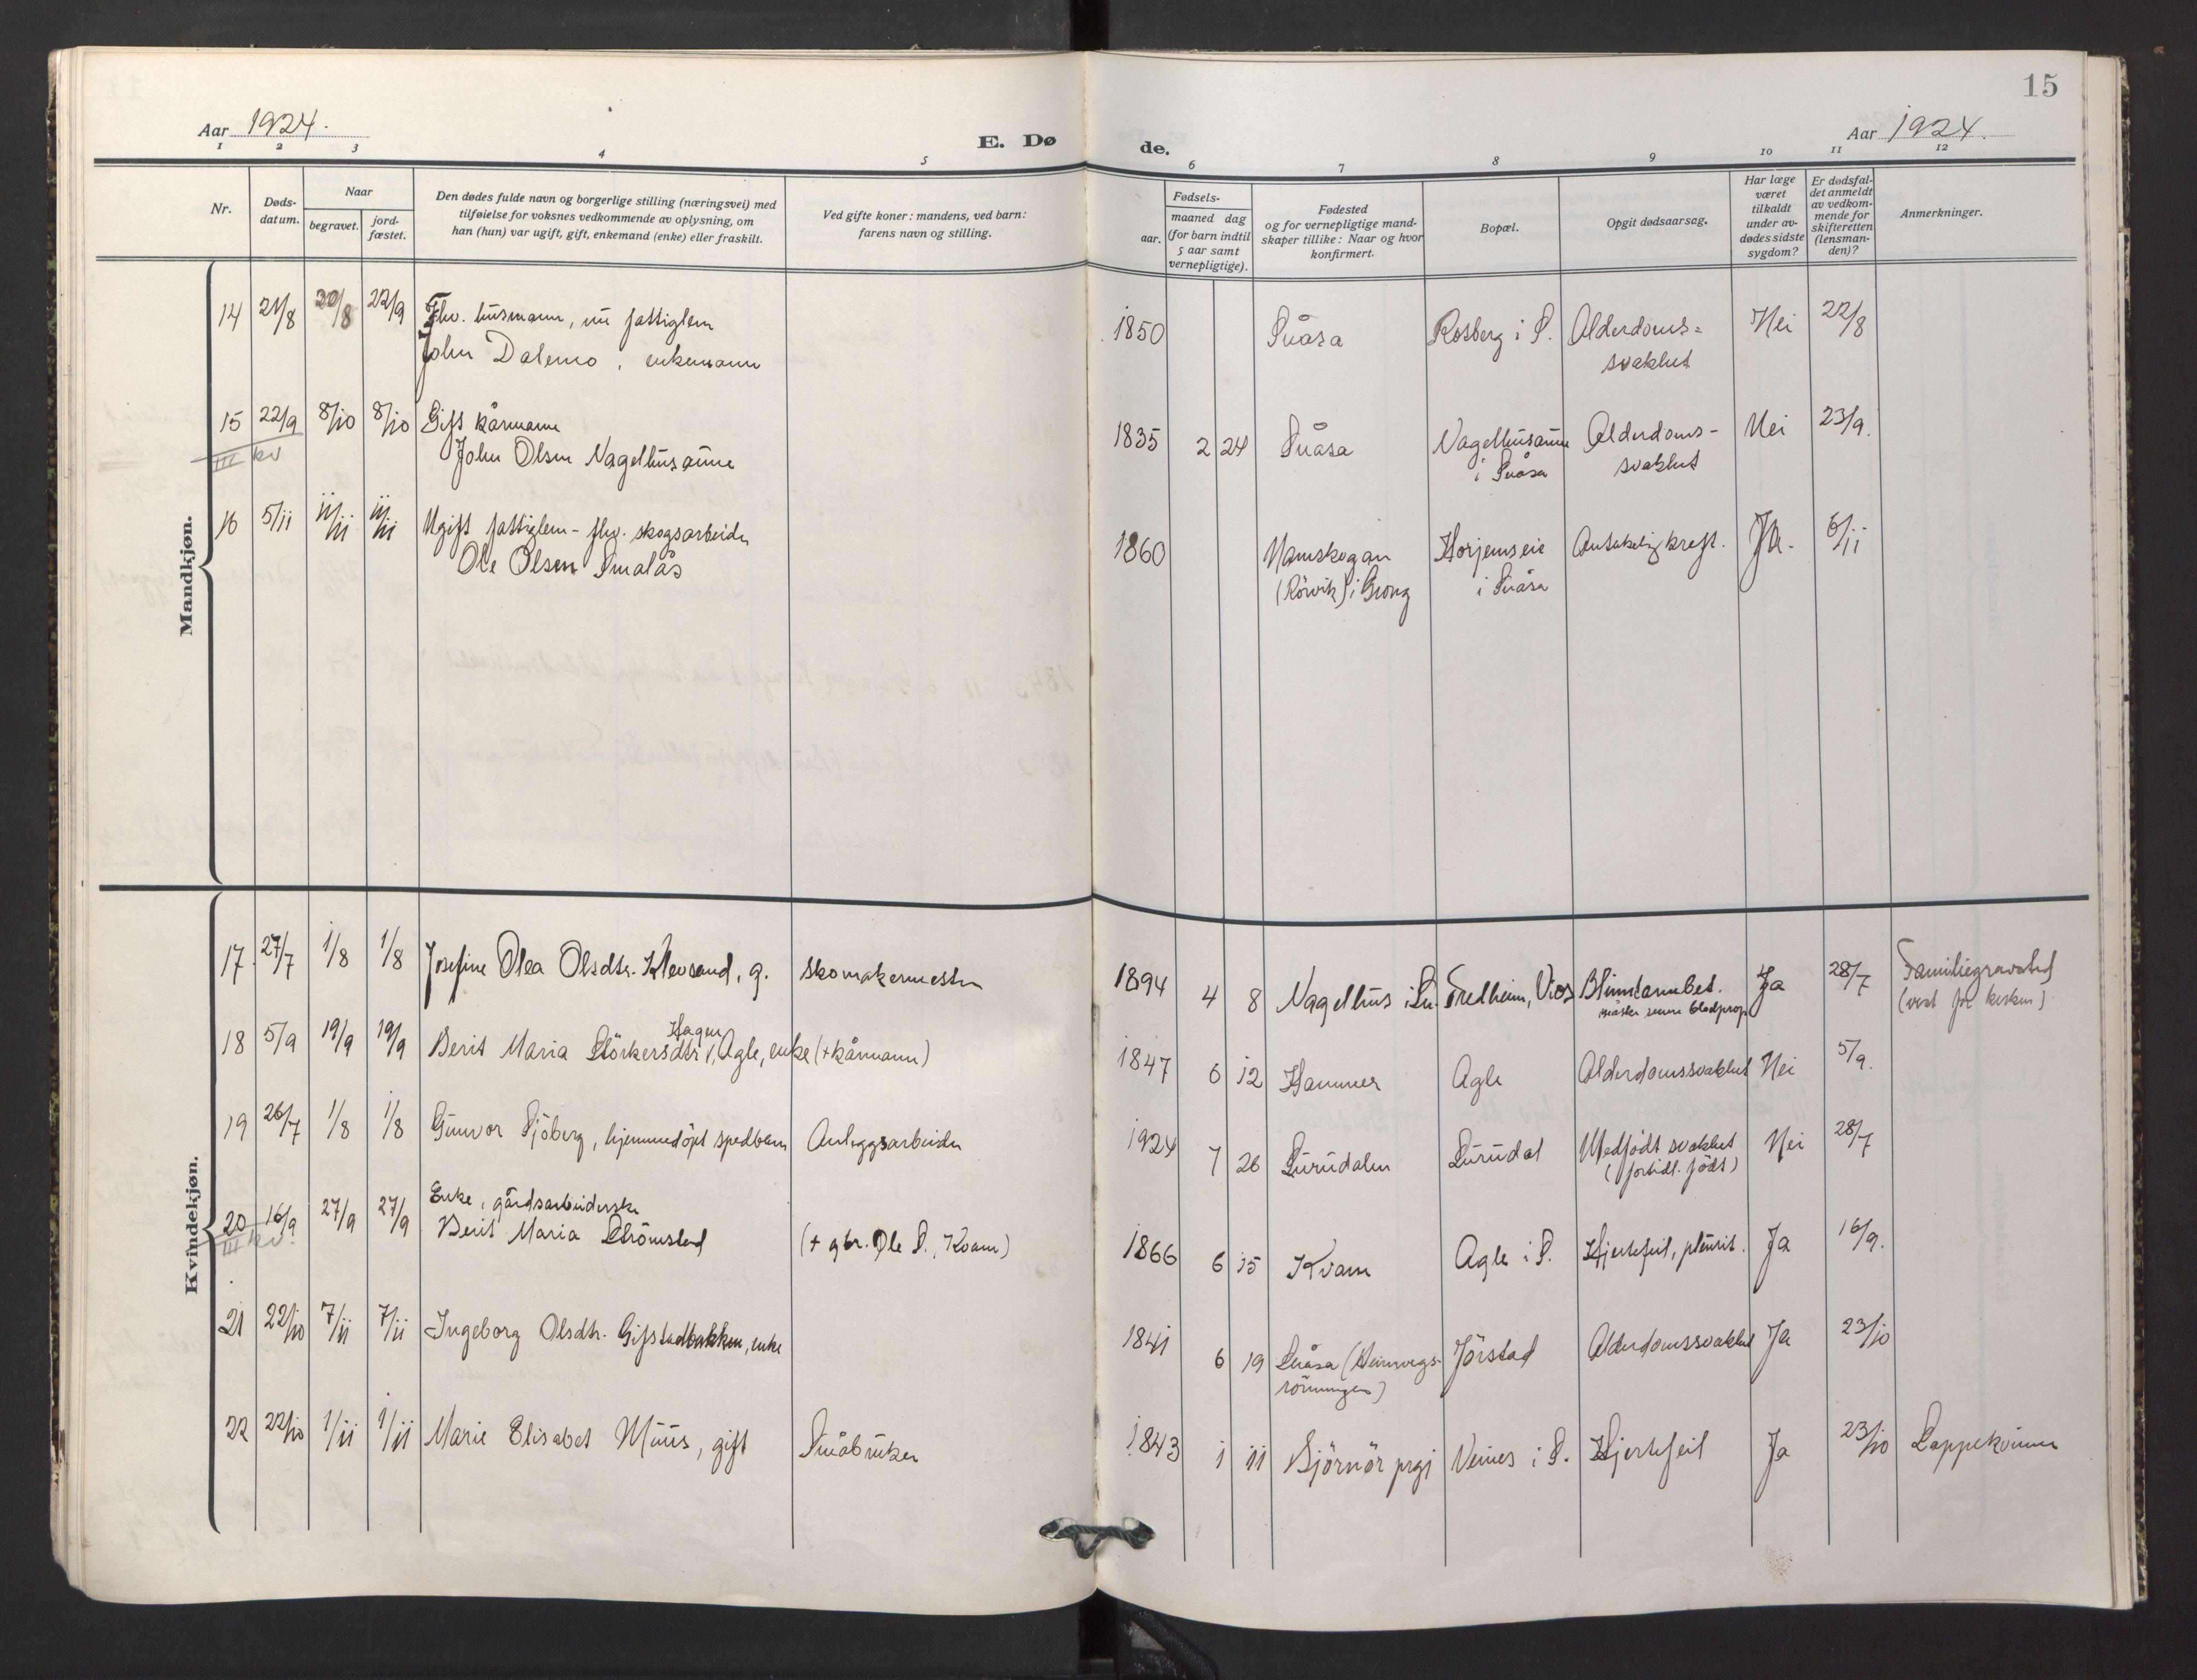 15
Aar 1924.
E. Dø
de.
Aar 1924.
1 2 3 4 5
6 7 8 9 10 11 12
Nr.
Døds-
datum.
Naar
begravet.
jord-
fæstet.
Den dødes fulde navn og borgerlige stilling (næringsvei) med
tilføielse for voksnes vedkommende av oplysning, om
han (hun) var ugift, gift, enkemand (enke) eller fraskilt.
Ved gifte koner: mandens, ved barn:
farens navn og stilling.
Fødsels-
aar.
maaned dag
(for barn indtil
5 aar samt
vernepligtige).
Fødested
og for vernepligtige mand-
skaper tillike: Naar og hvor
konfirmert.
Bopæl.
Opgit dødsaarsag.
Har læge
været
tilkaldt
under av-
dødes sidste
sygdom?
Er dødsfal-
det anmeldt
av vedkom-
mende for
skifteretten
(lensman-
den)?
Anmerkninger.
Mandkjøn.
14 21/8 30/8 22/9 Fhv. husmann, nu fattiglem
John Dalemo, enkemann
1850 Snåsa Rosberg i S. Alderdoms=
svakhet
Nei 22/8
15 22/9 8/10 8/10 Gift kårmann
III kv John Olsen Nagelhusaune
1835 2 24 Snåsa Nagelhusaune
i Snåsa
Alderdoms-
svakhet
Nei 23/9.
16 5/11 11/11 11/11 Ugift fattiglem - fhv. skogsarbeider
Ole Olsen Smalås
1860 Namskogan
(Rörvik) i Grong
Horjemseie
i Snåsa
Antakelig kreft. Ja. 6/11
Kvindekjøn.
17. 27/7 1/8 1/8 Josefine Olea Olsdtr. Klevsand, g. skomakermester
1894 4 8 Nagelhus i Sn. Fredheim, Vios Blinntarmbet.
blodprop
Ja 28/7 Familiegravsted
(vest for kirken)
18 5/9 19/9 19/9 Berit Maria Störkersdtr Hagen, Agle, enke (+ kårmann)
1847 6 12 Hammer Agle Alderdomssvakhet Nei 5/9.
19 26/7 1/8 1/8 Gunvor Sjöberg, hjemmedöpt spedbarn Anleggsarbeider
1924 7 26 Lurudalen Lurudal Medfödt svakhet
(fortidl. födt)
Nei 28/7
20 16/9 27/9 27/9 Enke, gårdsarbeiderske
III kv. Berit Maria Strömstad (+ gbr. Ole S., Kvam)
1866 6 15 Kvam Agle i S. Hjertefeil, pleurit. Ja 16/9.
21 22/10 7/11 7/11 Ingeborg Olsdtr. Gifstadbakken, enke
1841 6 19 Snåsa (Heimvegs-
rönningen)
Jörstad Alderdomssvakhet Ja 23/10
22 22/10 1/11 1/11 Marie Elisabet Muus, gift Småbruker
1843 1 11 Björnör prgj Veines i S. Hjertefeil Ja 23/10 Lappekvinne